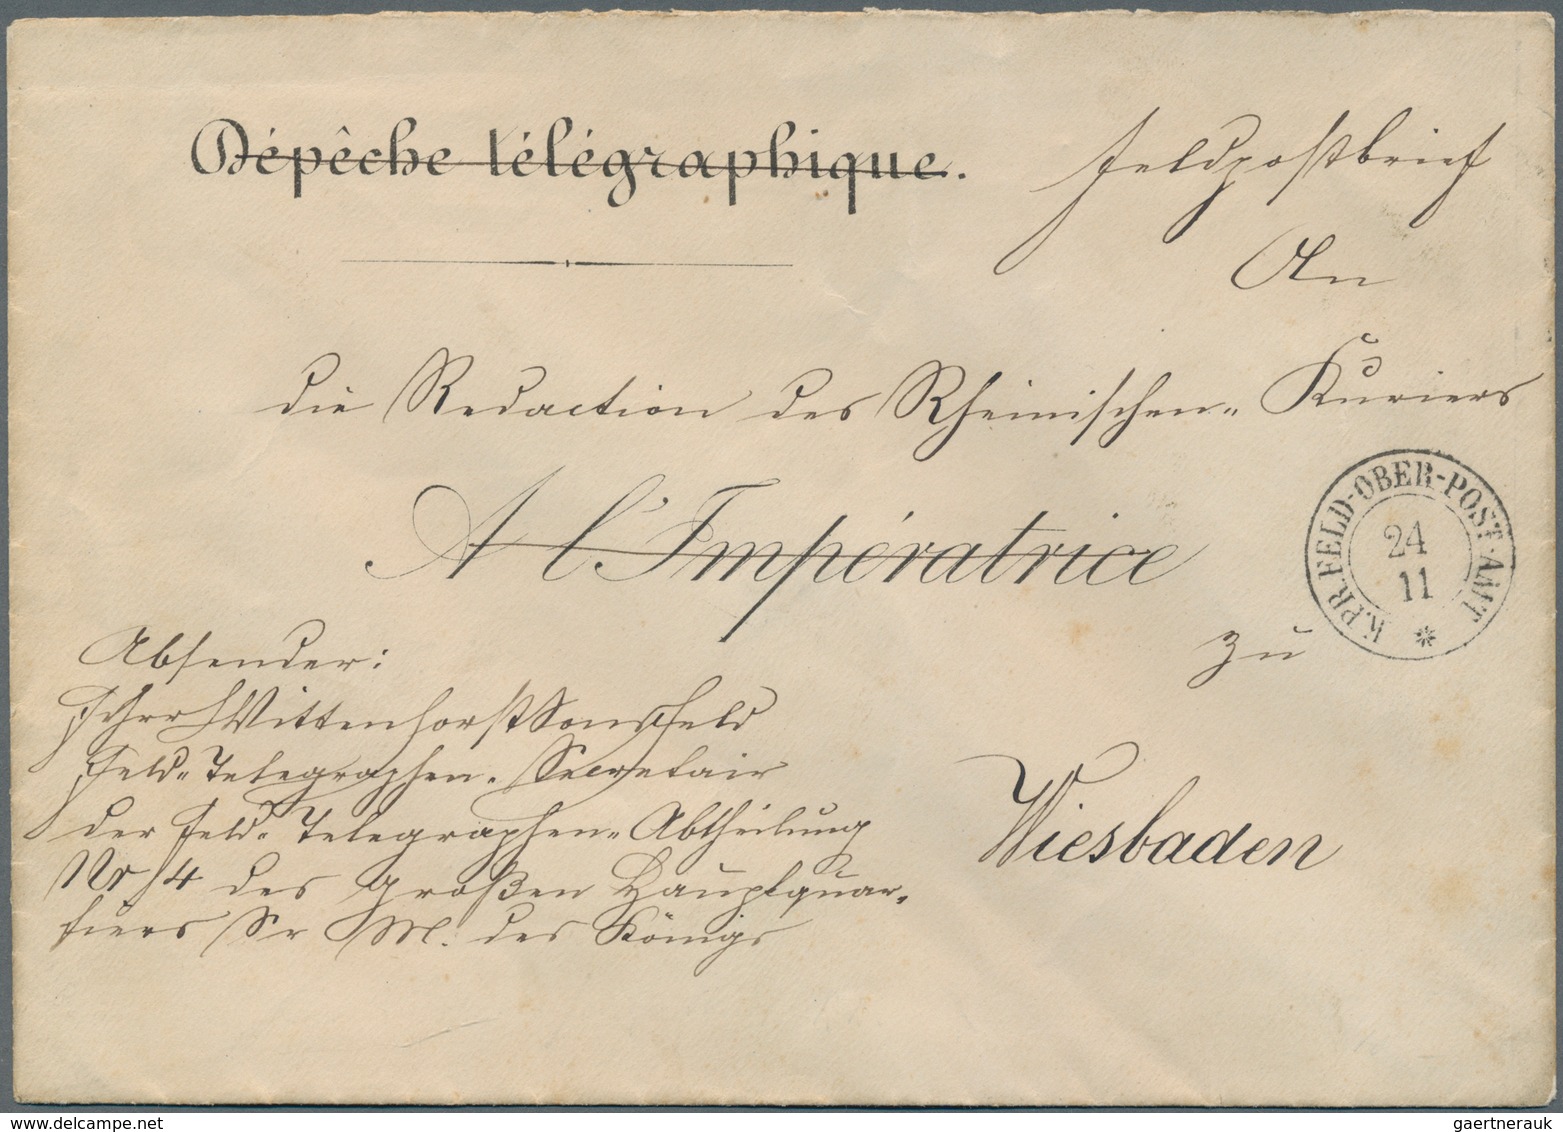 Dépêche télégraphique.
Feldpostbrief
An
die Redaction des Rheinischen Kuriers
A l'Impératrice
K.PR.FELD-OBER-POST-AMT
24
11
zu
Wiesbaden
Absender:
Frhr v Wittenhorst Sonsfeld
Feld-Telegraphen-Secretair
der Feld-Telegraphen-Abtheilung
Nr 4 des Großen Hauptquar-
tiers Sr M. des Königs
gaertnerauk